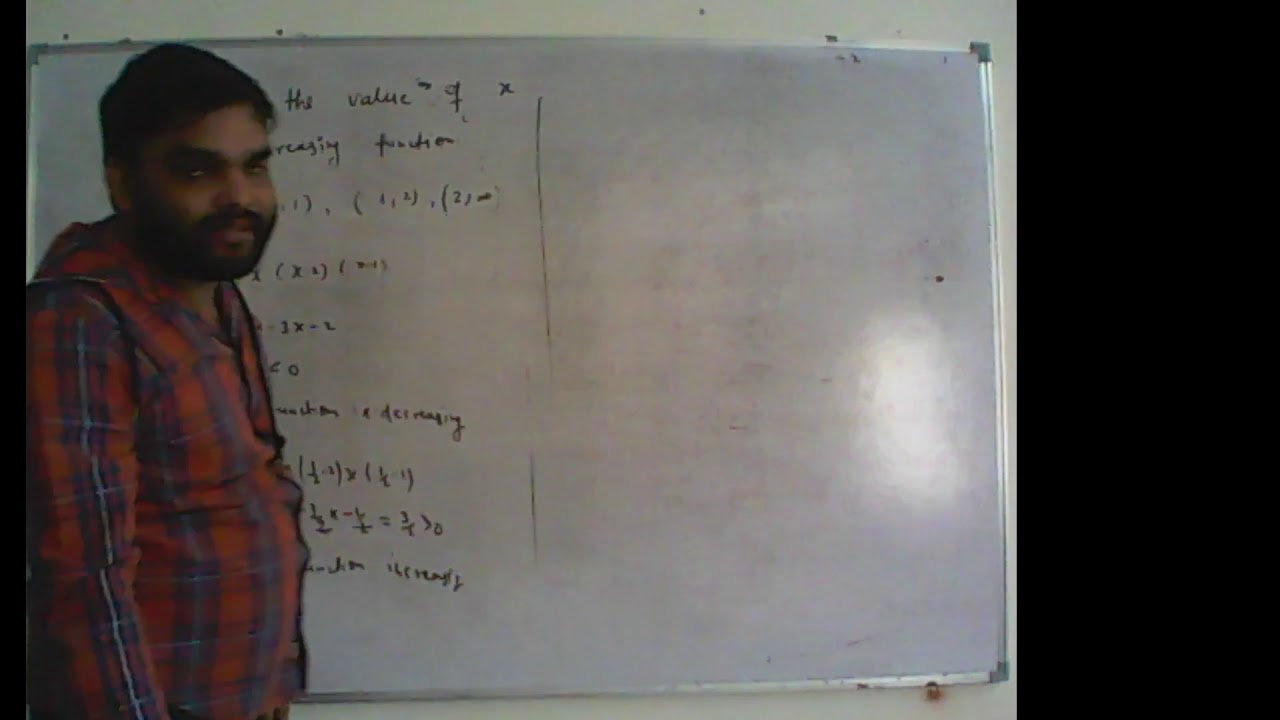 the value of x
reasing function
,1), (1,2), (2,∞)
x (x-2) (x-1)
x-3x-2
< 0
unction is decreasing
(½-2)x(½-1)
= 3/2 >0
unction increasing